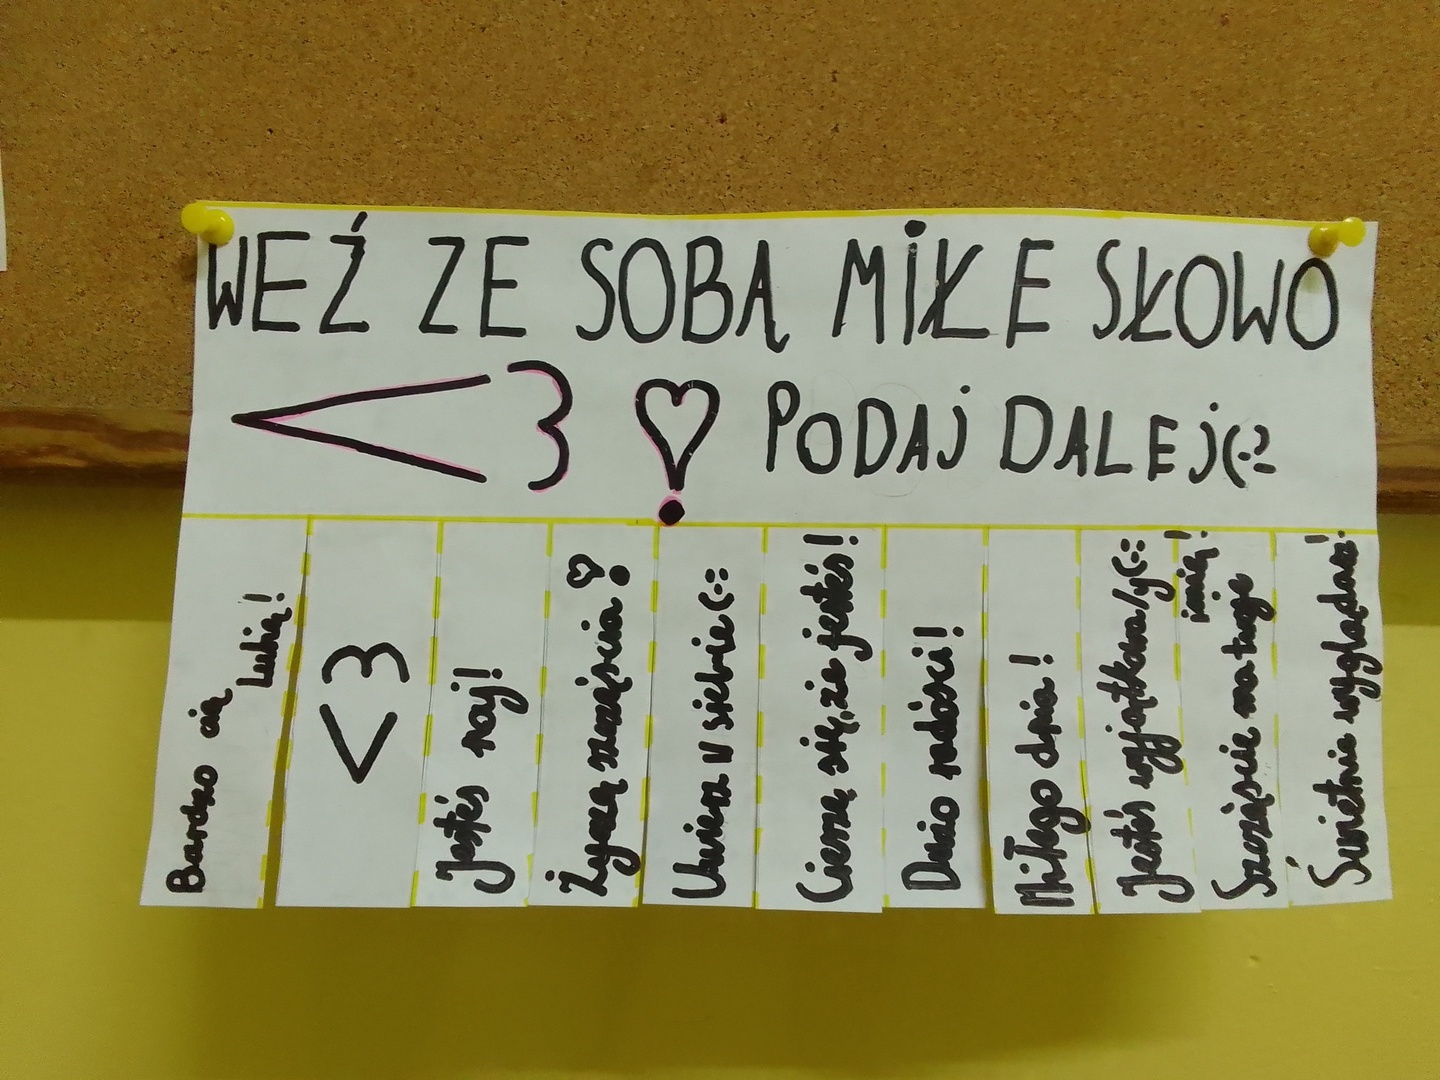 WEŹ ZE SOBĄ MIŁE SŁOWO
<3 PODAJ DALEJ(-:
Bardzo cię
lubię!
<3
Jesteś naj!
Życzę szczęścia
Uwierz w siebie (-:
Cieszę się, że jesteś!
Dużo radości!
Miłego dnia!
Jesteś wyjątkowa/y(-:
Szczęście ma twoje
imię!
Świetnie wyglądasz!